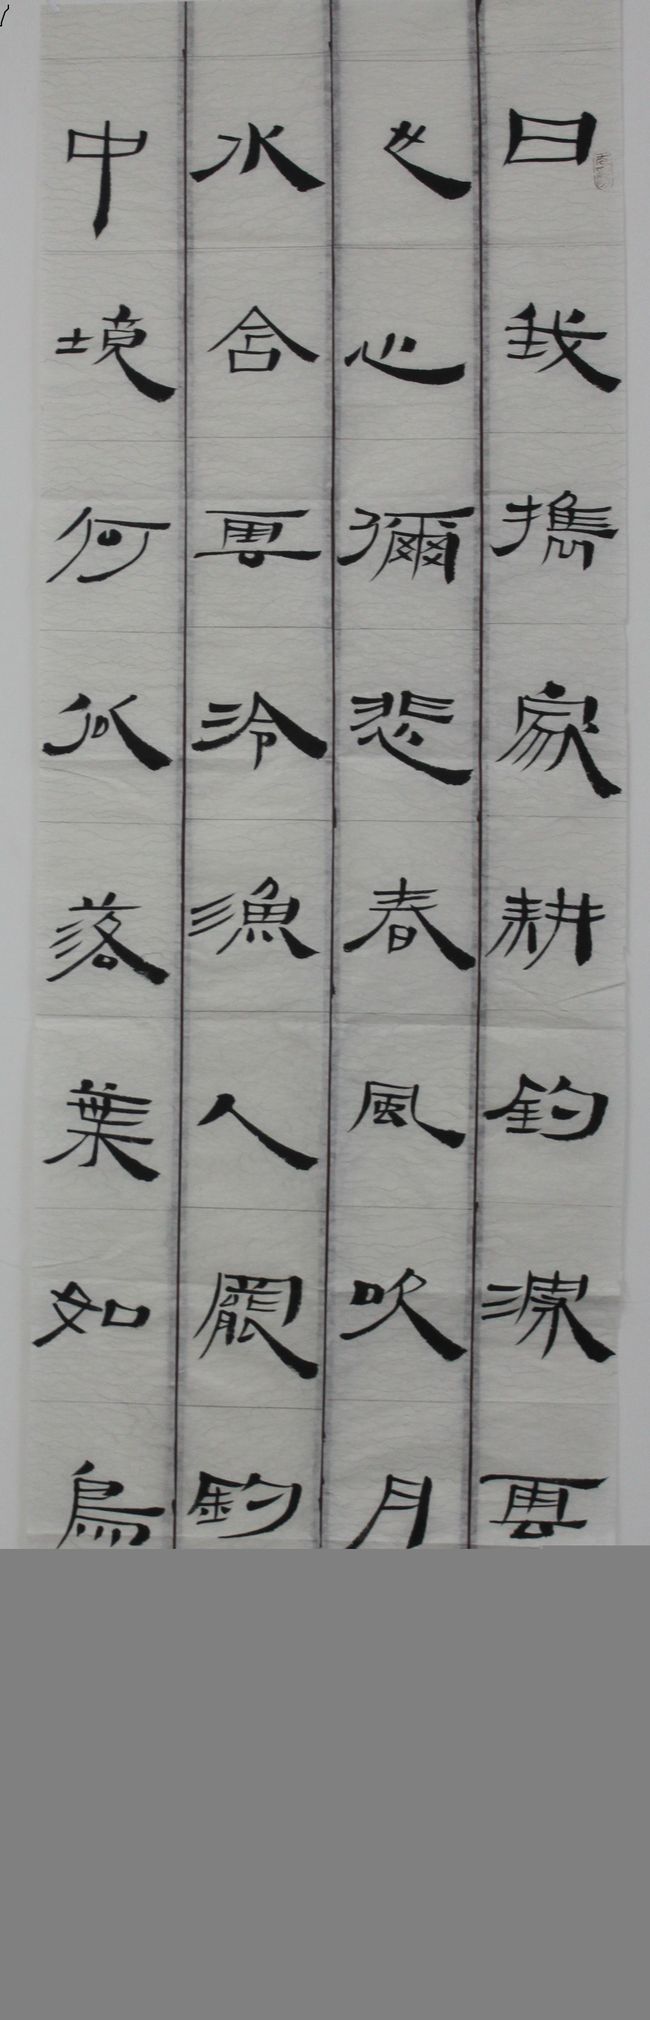 曰我攜家耕釣深雲
心彌悲春風吹月
水含雲冷漁人罷釣
中境何似落葉如鳥